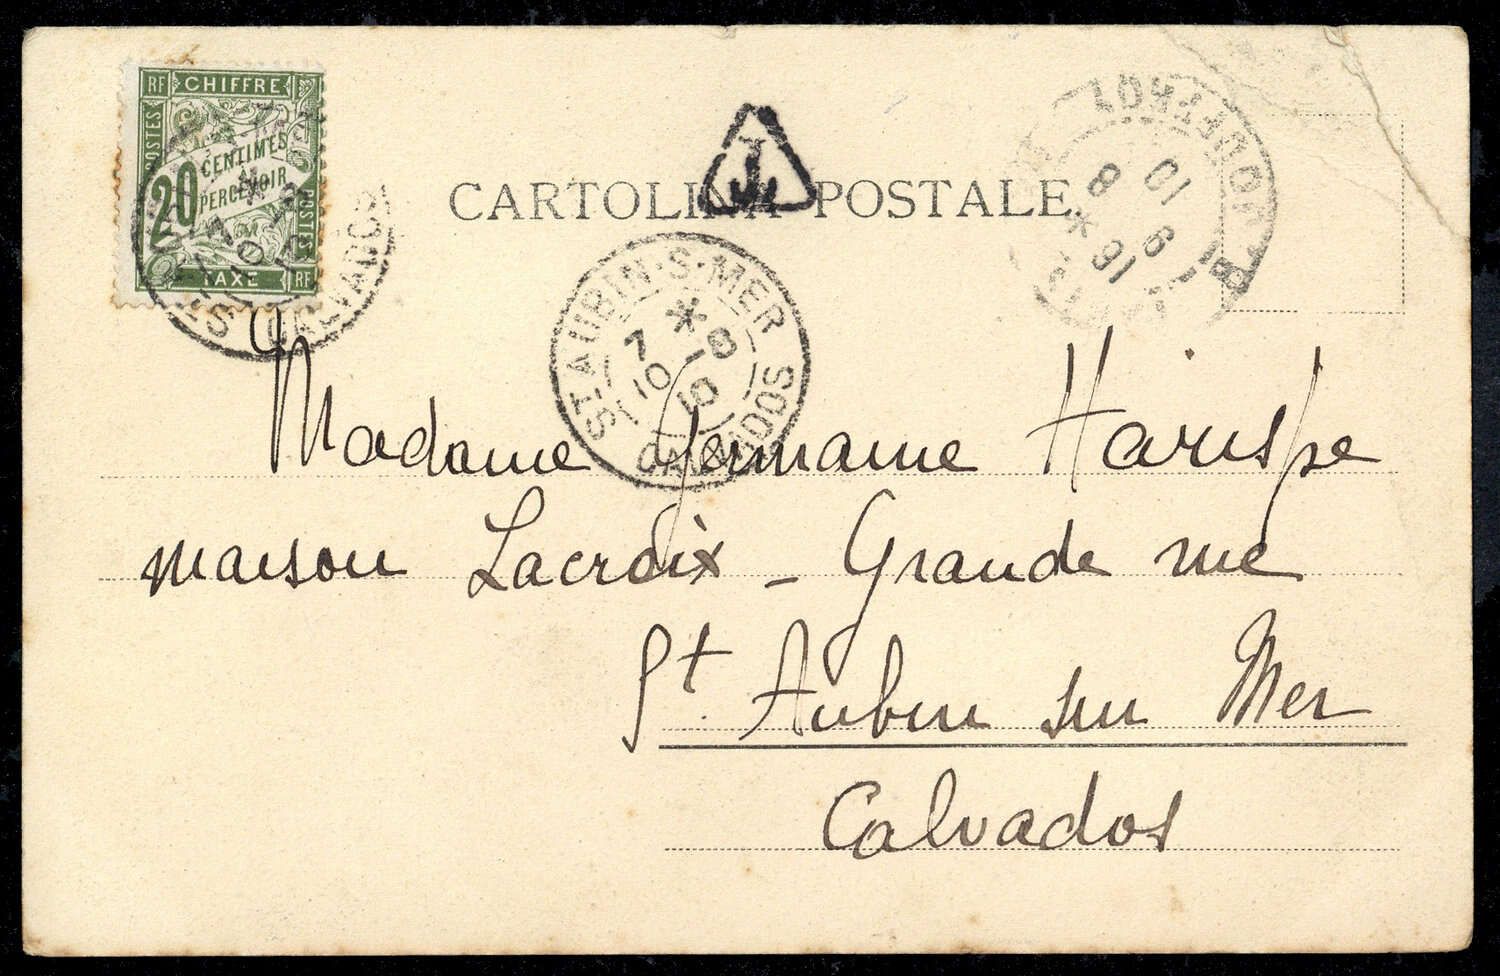 RF CHIFFRE
POSTES
20 CENTIMES
PERCEVOIR
POSTES
TAXE RF
CALVADOS
T
CARTOLINA POSTALE
ST. AUBIN-S-MER
7 * 10 -8 10
CALVADOS
16 * 8
9 10
Madame Germaine Harispe
maison Lacroix - Grande rue
St. Aubin sur Mer
Calvados